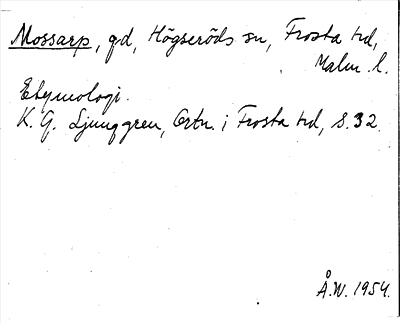 Mossarp, gd, Högseröds sn, Frosta hd,
Malm. l.
Etymologi.
K. G. Ljunggren, Ortn. i Frosta hd, s. 32.
Å.W. 1954.